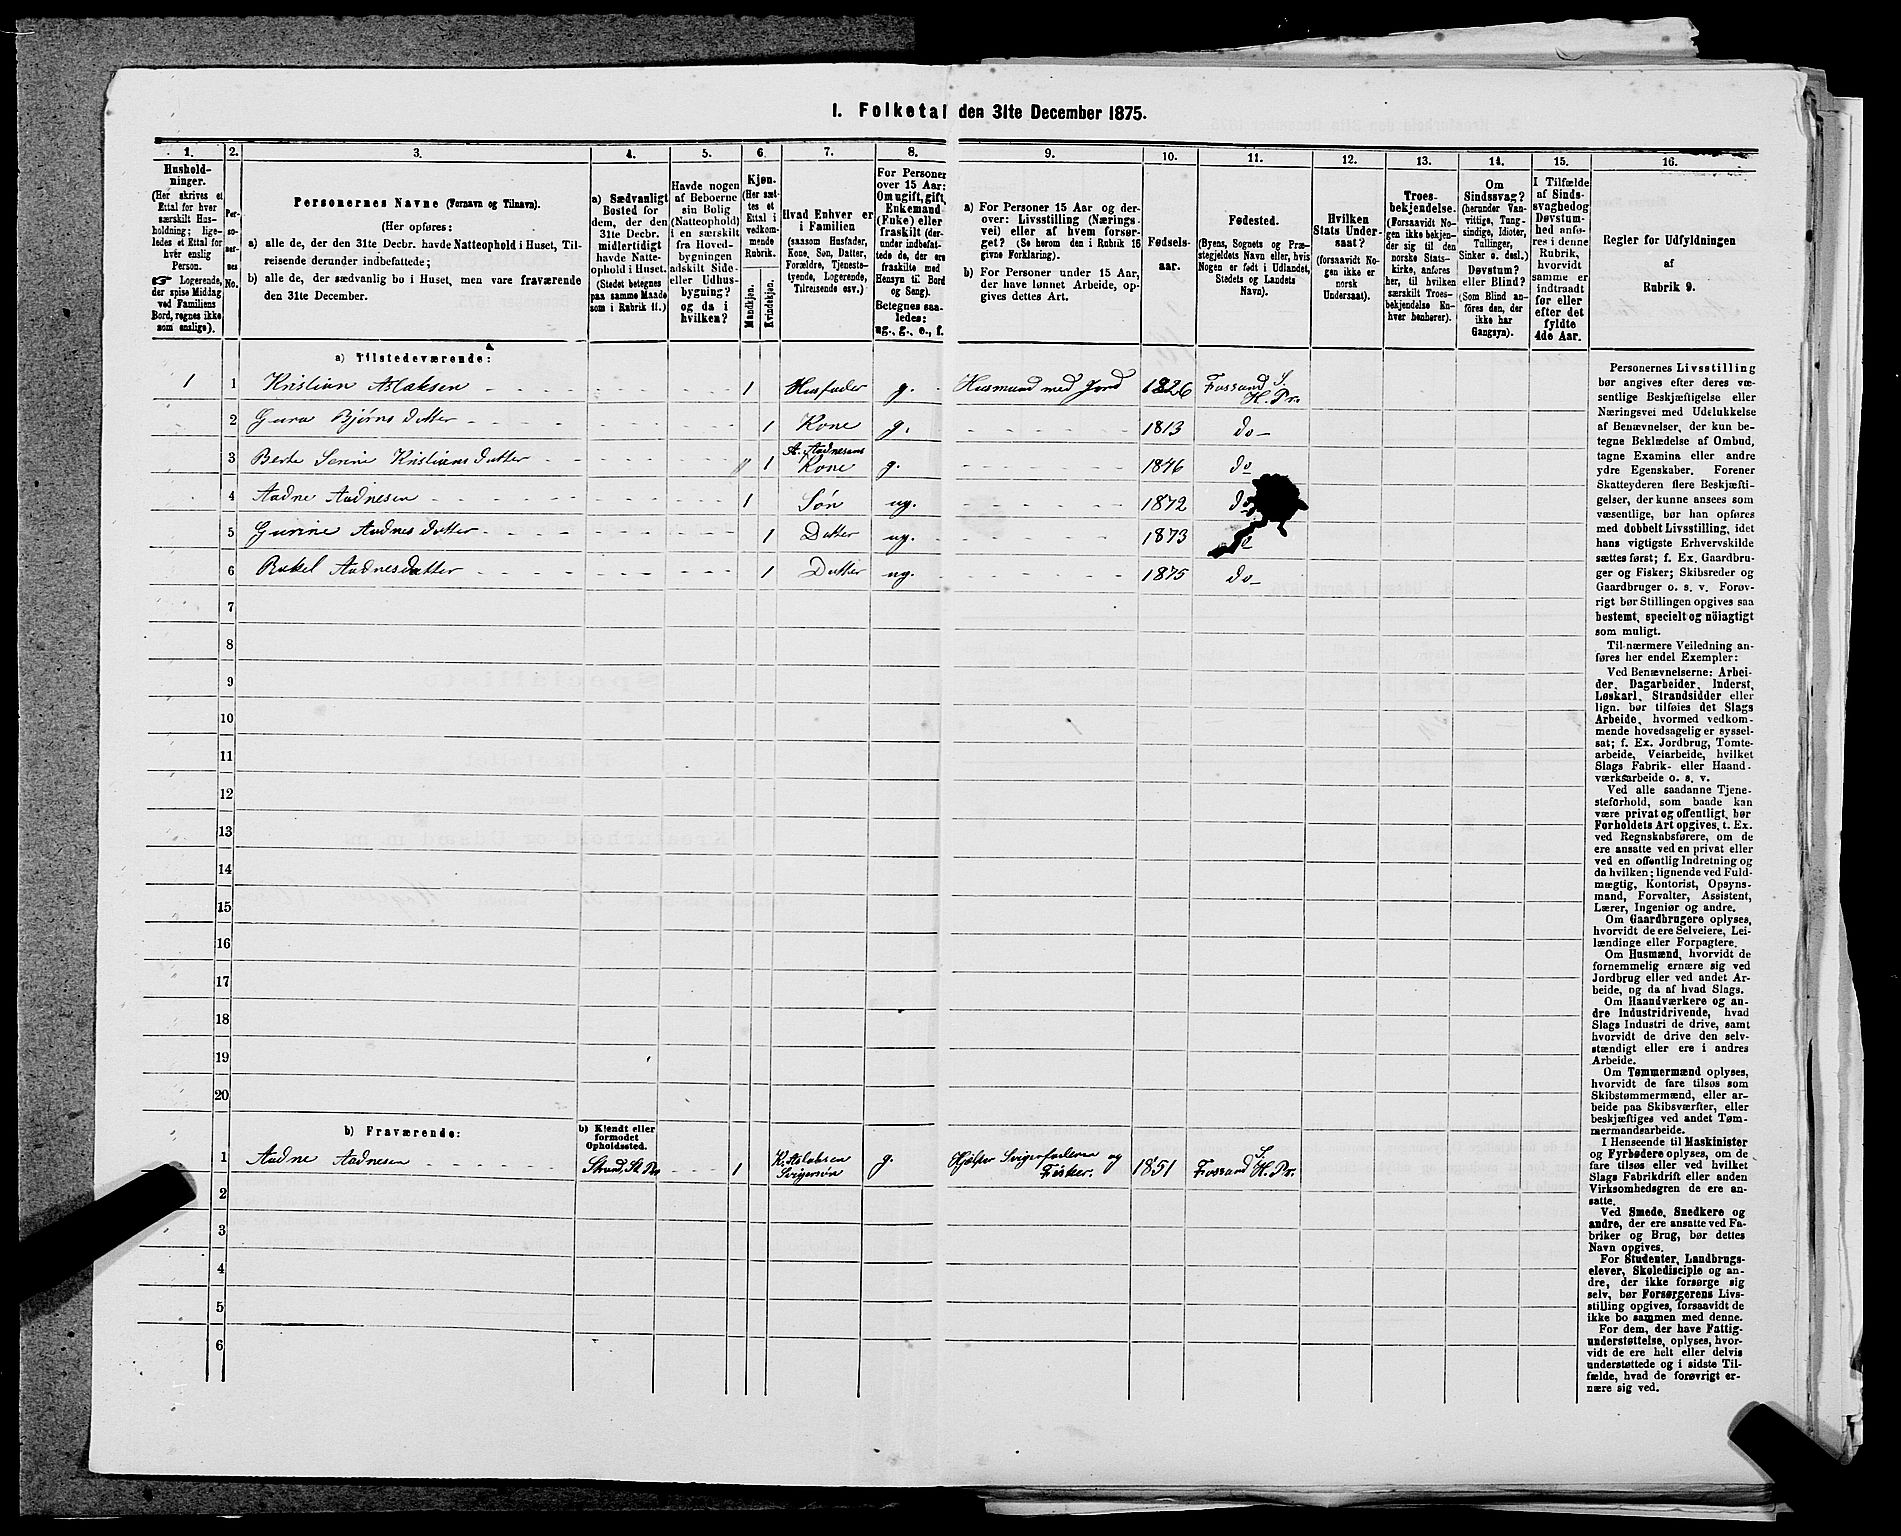 1. Folketal den 31te December 1875.
1. 2. 3. 4. 5. 6. 7. 8. 9. 10. 11. 12. 13. 14. 15. 16.
Hushold-
ninger.
(Her skrives et
Ettal for hver
særskilt Hus-
holdning; lige-
ledes et Ettal for
hver enslig
Person.
☞ Logerende,
der spise Middag
ved Familiens
Bord, regnes ikke
som enslige).
Per-
soner-
nes
No.
Personernes Navne (Fornavn og Tilnavn).
(Her opføres:
a) alle de, der den 31te Decbr. havde Natteophold i Huset, Til-
reisende derunder indbefattede;
b) alle de, der sædvanlig bo i Huset, men vare fraværende
den 31te December.
a) Sædvanligt
Bosted for
dem, der den
31te Decbr.
midlertidigt
havde Natte-
ophold i Huset.
(Stedet betegnes
paa samme Maade
som i Rubrik 11.)
Havde nogen
af Beboerne
sin Bolig
(Natteophold)
i en særskilt
fra Hoved-
bygningen
adskilt Side-
eller Udhus-
bygning?
og da i
hvilken?
Kjøn.
(Her sæt-
tes et
Ettal i
vedkom-
mende
Rubrik.
Mandkjøn.
Kvindekjøn.
Hvad Enhver er
i Familien
(saasom Husfader,
Kone, Søn, Datter,
Forældre, Tjeneste-
tyende, Logerende,
Tilreisende osv.)
For Personer
over 15 Aar:
Om ugift, gift,
Enkemand
(Enke) eller
fraskilt (der-
under indbefat-
tede de, der ere
fraskilte med
Hensyn til Bord
og Seng).
Betegnes saa-
ledes:
ug., g., e., f.
a) For Personer 15 Aar og der-
over: Livsstilling (Nærings-
vei) eller af hvem forsør-
get? (Se herom den i Rubrik 16
givne Forklaring).
b) For Personer under 15 Aar,
der have lønnet Arbeide, op-
gives dettes Art.
Fødsels-
aar.
Fødested.
(Byens, Sognets og Præ-
stegjeldets Navn eller, hvis
Nogen er født i Udlandet,
Stedets og Landets
Navn).
Hvilken
Stats Under-
saat?
(forsaavidt No-
gen ikke er
norsk
Undersaat).
Troes-
bekjendelse.
(Forsaavidt No-
gen ikke bekjen-
der sig til den
norske Stats-
kirke, anføres
her, til hvilken
særskilt Troes-
bekjendelse En-
hver henhører).
Om
Sindssvag?
(herunder Van-
vittige, Idioter,
Tullinger,
Sinker o. desl.)
Døvstum?
eller Blind?
(Som Blind an-
føres den, der
ikke har
Gangsyn).
I Tilfælde
af Sinds-
svaghed og
Døvstum-
hed anfø-
res i denne
Rubrik,
hvorvidt
samme er
indtraadt
før eller
efter det
fyldte
4de Aar.
Regler for Udfyldningen
af
Rubrik 9.
a) Tilstedeværende:
1 1 Kristian Aslaksen 1 Husfader g. Husmand med Jord 1826 Fossand S. H. Pr.
2 Guro Bjørnsdatter 1 Kone g. 1813 do
3 Berte Serine Kristiansdatter 1 A. Aadnesens Kone g. 1846 do
4 Aadne Aadnesen 1 Søn ug. 1872 do
5 Gurine Aadnesdatter 1 Datter ug. 1873
6 Rakel Aadnesdatter 1 Datter ug. 1875 do
7
8
9
10
11
12
13
14
15
16
17
18
19
20
b) Fraværende:
b) Kjendt eller
formodet
Opholdssted.
1 Aadne Aadnesen Strand, St. Pr. 1 K. Aslaksen Svigersøn g. Hjælper Svigerfaderen og Fisker. 1851 Fossand S. H. Pr.
2
3
4
5
6
Personernes Livsstilling
bør angives efter deres væ-
sentlige Beskjæftigelse eller
Næringsvei med Udelukkelse
af Benævnelser, der kun be-
tegne Beklædelse af Ombud,
tagne Examina eller andre
ydre Egenskaber. Forener
Skatteyderen flere Beskjæfti-
gelser, der kunne ansees som
væsentlige, bør han opføres
med dobbelt Livsstilling, idet
hans vigtigste Erhvervskilde
sættes først; f. Ex. Gaardbru-
ger og Fisker; Skibsreder og
Gaardbruger o. s. v. Forøv-
rigt bør Stillingen opgives saa
bestemt, specielt og nöiagtigt
som muligt.
Til nærmere Veiledning an-
føres her endel Exempler:
Ved Benævnelserne: Arbei-
der, Dagarbeider, Inderst,
Løskarl, Strandsidder eller
lign. bør tilføies det Slags
Arbeide, hvormed vedkom-
mende hovedsagelig er syssel-
sat; f. Ex. Jordbrug, Tomte-
arbeide, Veiarbeide, hvilket
Slags Fabrik- eller Haand-
værksarbeide o. s. v.
Ved alle saadanne Tjene-
steforhold, som baade kan
være privat og offentligt, bør
Forholdets Art opgives, t. Ex.
ved Regnskabsførere, om de
ere ansatte ved en privat eller
ved en offentlig Indretning og
da hvilken; lignende ved Fuld-
mægtig, Kontorist, Opsyns-
mand, Forvalter, Assistent,
Lærer, Ingeniør og andre.
Om Gaardbrugere oplyses,
hvorvidt de ere Selveiere, Lei-
lændinge eller Forpagtere.
Om Husmænd, hvorvidt de
fornemmelig ernære sig ved
Jordbrug eller ved andet Ar-
beide, og da af hvad Slags.
Om Haandværkere og an-
dre Industridrivende, hvad
Slags Industri de drive, samt
hvorvidt de drive den selv-
stændigt eller ere i andres
Arbeide.
Om Tømmermænd oplyses,
hvorvidt de fare tilsøs som
Skibstømmermænd, eller ar-
beide paa Skibsværfter, eller
beskjæftiges ved andet Tøm-
mermandsarbeide.
I Henseende til Maskinister
og Fyrbødere oplyses, om de
fare tilsøs eller ved hvilket
Slags Fabrikdrift eller anden
Virksomhedsgren de ere an-
satte.
Ved Smede, Snedkere og
andre, der ere ansatte ved Fa-
briker og Brug, bør dettes
Navn opgives.
For Studenter, Landbrugs-
elever, Skoledisciple og an-
dre, der ikke forsørge sig
selv, bør Forsørgerens Livs-
stilling opgives, forsaavidt de
ikke bo sammen med denne.
For dem, der have Fattig-
understøttelse, oplyses, hvor-
vidt de ere helt eller delvis
understøttede og i sidste Til-
fælde, hvad de forøvrigt er-
nære sig ved.